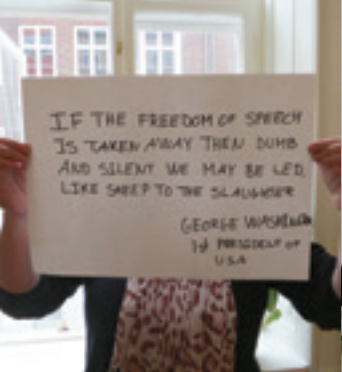 IF THE FREEDOM OF SPEECH
IS TAKEN AWAY THEN DUMB
AND SILENT WE MAY BE LED,
LIKE SHEEP TO THE SLAUGHTER
GEORGE WASHINGTON
1st PRESIDENT OF
USA